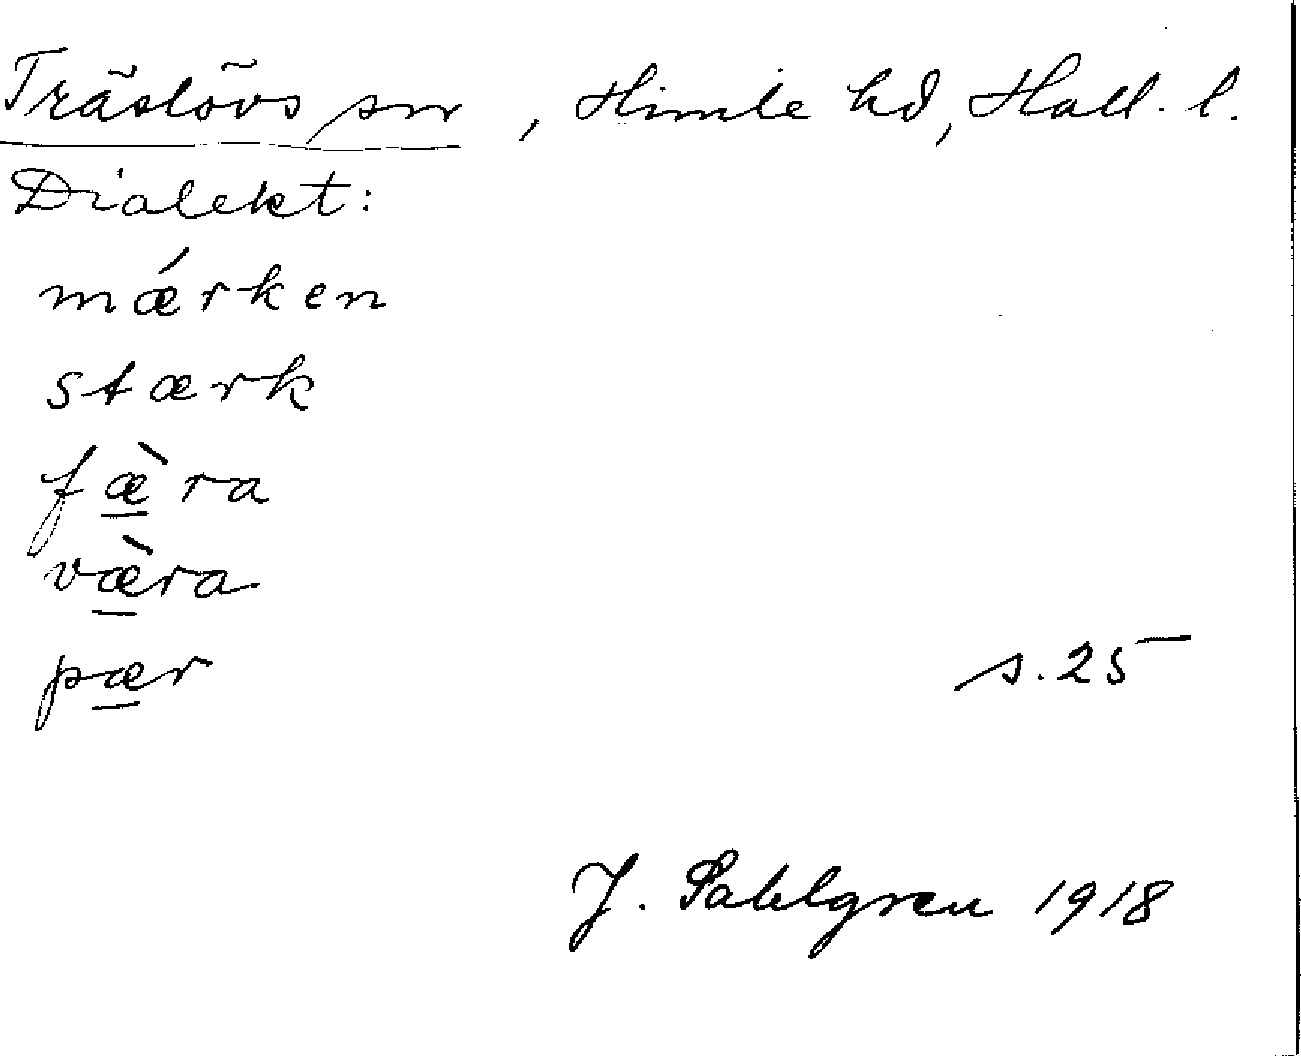 Träslövs sn, Himle hd, Hall. l.
Dialekt:
mǽrken
stærk
fæ̱̀ra
væ̱̀ra
pæ̱r
s. 25
J. Sahlgren 1918